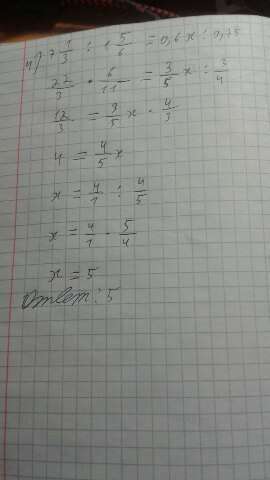 4) 7 1/3 : 1 5/6 = 0,6x : 0,75
22/3 · 6/11 = 3/5 x : 3/4
12/3 = 3/5 x · 4/3
4 = 4/5 x
x = 4/1 : 4/5
x = 4/1 · 5/4
x = 5
Ответ: 5